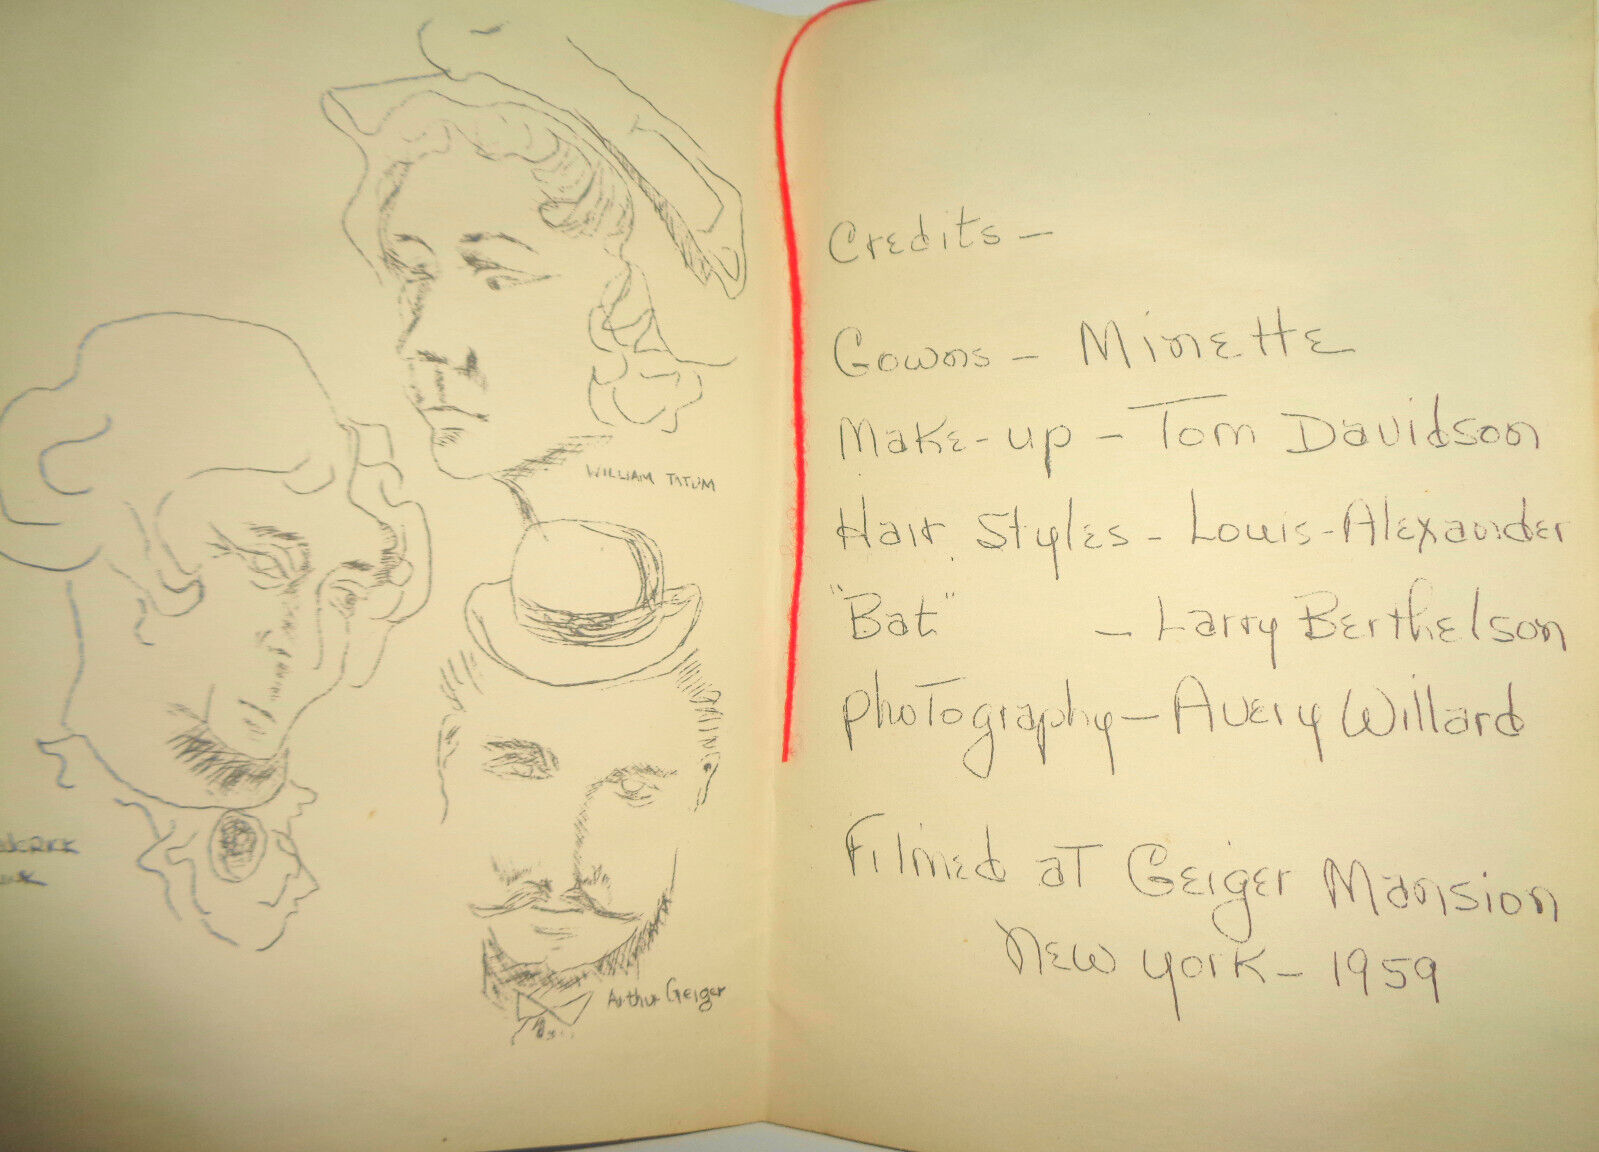 WILLIAM TATUM
Arthur Geiger
Credits -
Gowns - Minette
Make-up - Tom Davidson
Hair Styles - Louis-Alexander
"Bat" - Larry Berthelson
photography - Avery Willard
Filmed at Geiger Mansion
New York - 1959